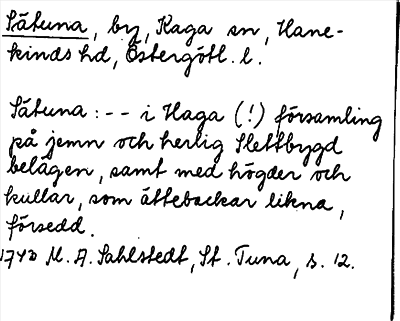 Sätuna, by, Kaga sn, Hane-
kinds hd, Östergötl. l.
Sätuna: -- i Haga (!) församling
på jemn och herlig Slettbygd
belägen, samt med högder och
kullar, som ättebackar likna,
försedd.
1743 M. A. Sahlstedt, St. Tuna, s. 12.